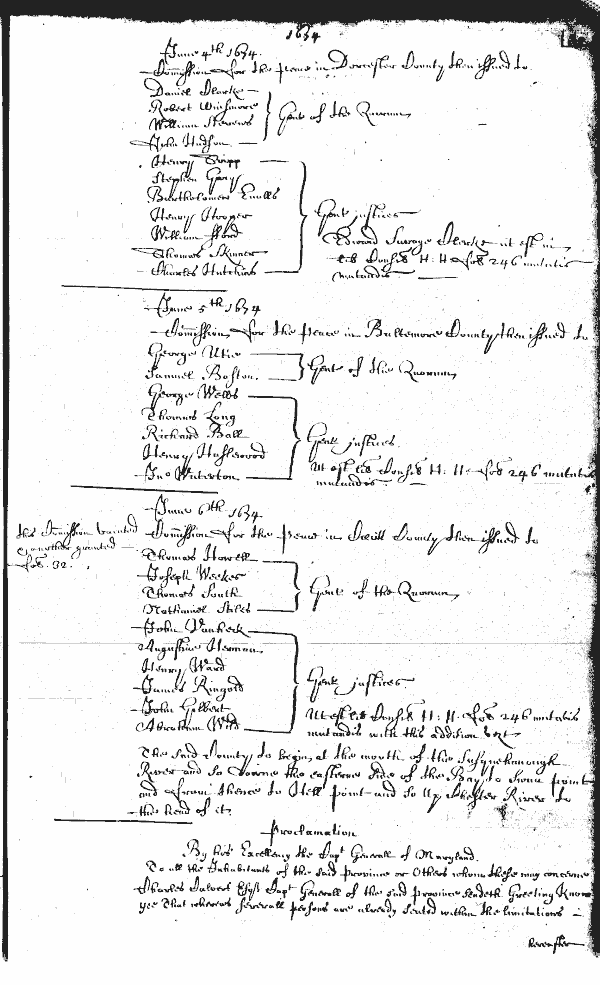 1674
June 4th 1674.
Comission for the peace in Dorcester County then issued to
Daniel Clarke
Robert Winsmore
William Stevens
John Hudson
Gent of the Quorum
Henry Tripp
Stephen Gary
Bartholomew Ennolls
Henry Hooper
William fford
Thomas Skinner
Charles Hutchins
Gent justices
Edward Savage Clerke ut est in
lib Consil H: H fol 246 mutatis
mutandis
June 5th 1674
Comission for the peace in Baltemore County then issued to
George Utie
Samuel Boston.
Gent of the Quorum
George Wells
Thomas Long
Richard Ball
Henry Haslewood
Jno Waterton
Gent justices.
Ut est lib Consil H: H: fol 246 mutatis
mutandis
June 6th 1674.
this Comission
another granted
fol. 32.
Comission for the peace in Cecill County then issued to
Thomas Howell
Joseph Weekes
Thomas South
Nathaniel Stiles
Gent of the Quorum
John Vanheck
Augustine Herman
Henry Ward
James Ringold
John Gilbert
Abraham Wild
Gent justices
Ut est lib Consil H: H. fol 246 mutatis
mutandis with this addition vizt
The said County to begin at the mouth of the Susquehannough
River and so downe the easterne side of the Bay to Swan point
and from thence to Hell point and so up Chester River to
the head of it
Proclamation
By his Excellency the Capt Generall of Maryland.
To all the Inhabitants of the said Province or Others whom these may concerne
Charles Calvert Esqr Capt Generall of the said province sendeth Greeting Know
yee That whereas severall persons are already seated within the limitations
hereafter